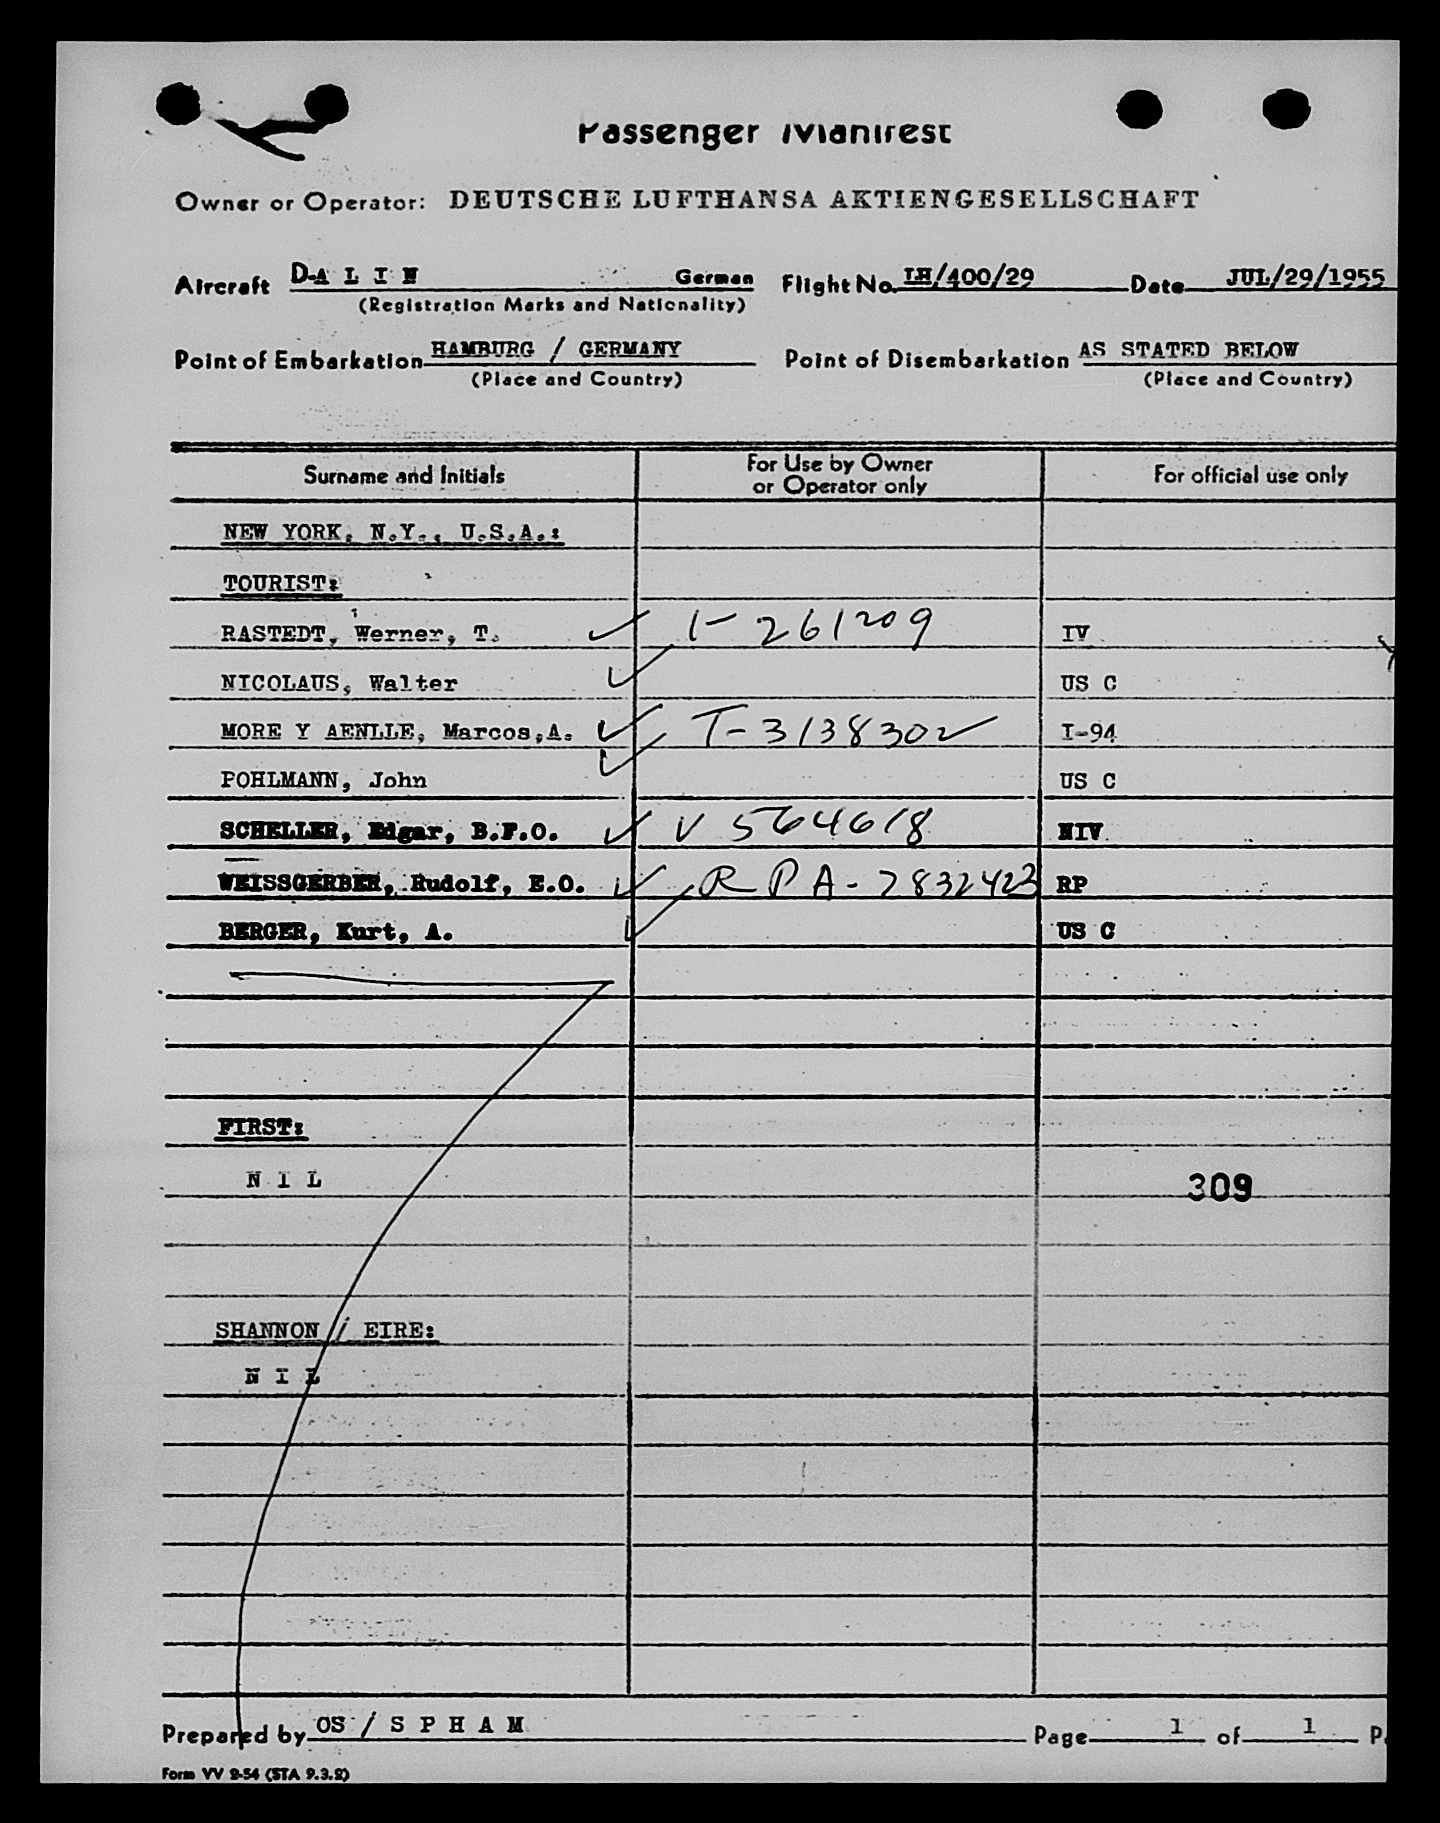 Passenger Manifest
Owner or Operator: DEUTSCHE LUFTHANSA AKTIENGESELLSCHAFT
Aircraft D-A L I N German Flight No. LH/400/29 Date JUL/29/1955
(Registration Marks and Nationality)
Point of Embarkation HAMBURG / GERMANY Point of Disembarkation AS STATED BELOW
(Place and Country) (Place and Country)
Surname and Initials For Use by Owner or Operator only For official use only
NEW YORK, N.Y., U.S.A.:
TOURIST:
RASTEDT, Werner, T. 1-261209 IV
NICOLAUS, Walter US C
MORE Y AENLLE, Marcos,A. T-3138302 I-94
POHLMANN, John US C
SCHELLER, Edgar, B.F.O. V 564618 NIV
WEISSGERBER, Rudolf, E.O. RPA-7832423 RP
BERGER, Kurt, A. US C
FIRST:
N I L 309
SHANNON / EIRE:
N I L
Prepared by OS / S P H A M Page 1 of 1 P
Form VV 2-54 (STA 9.3.2)